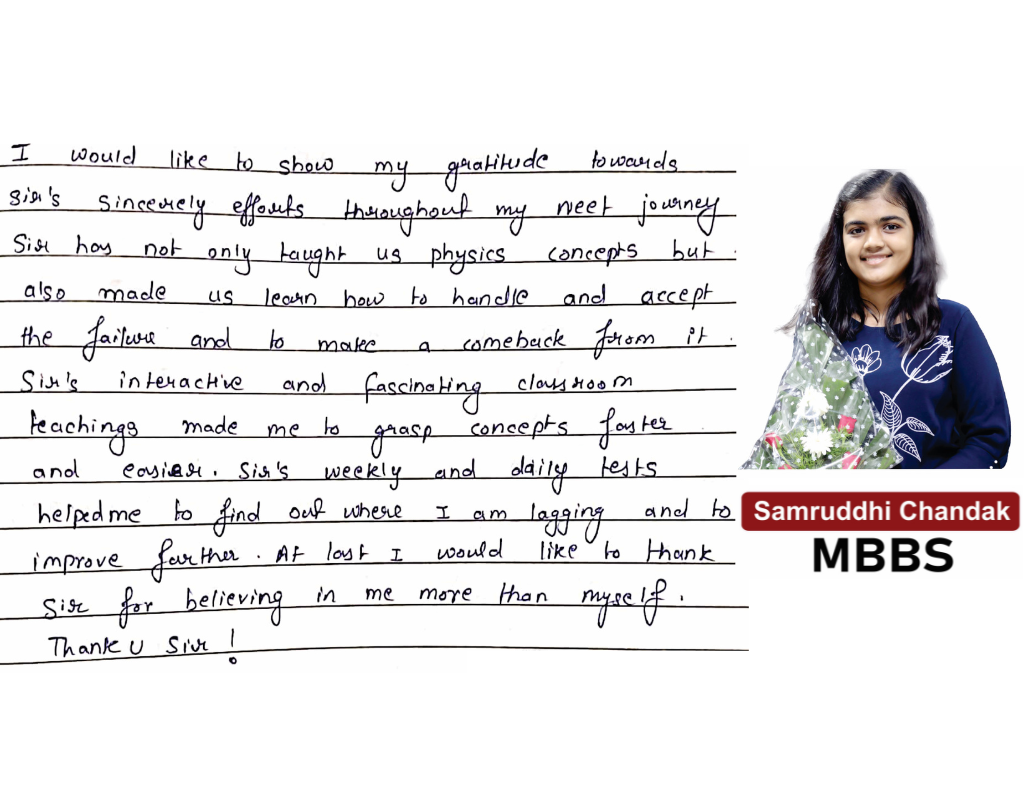 I would like to show my gratitude towards
Sir's sincerely efforts throughout my neet journey
Sir has not only taught us physics concepts but
also made us learn how to handle and accept
the failure and to make a comeback from it.
Sir's interactive and fascinating classroom
teachings made me to grasp concepts faster
and easier. Sir's weekly and daily tests
helped me to find out where I am lagging and to
improve further. At last I would like to thank
Sir for believing in me more than myself.
Thank u Sir!
Samruddhi Chandak
MBBS